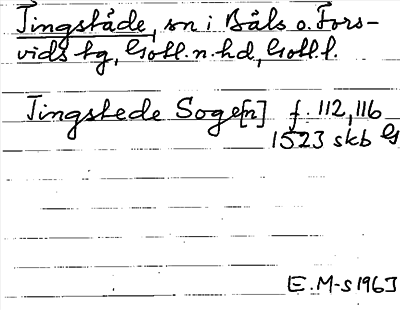 Tingstäde, sn i Bäls o. Fors-
vids tg, Gotl. n. hd, Gotl. l.
Tingstede Soge[n] f. 112, 116
1523 skb Gs
E. M-s 1963